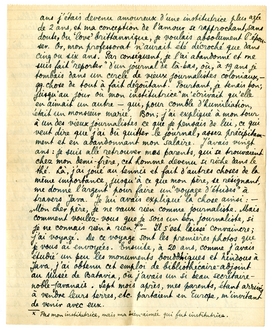 ans j'étais devenu amoureux d'une institutrice plus agée
de 2 ans et ma conception de l'amour se rapprochant sans
doute du 'love' brittannique, je voulais absolument l'épou-
ser. Or, mon professorat n'aurait été décroché que dans
cinq ou six ans. Par conséquent, je l'ai abandonné et me
suis fait reporter d'un journal de là-bas, où à 19 ans je
tombais dans un cercle de vieux journalistes coloniaux,
chose de tout à fait dégoûtant. Pourtant, je tenais bon,
jusqu'au jour où mon institutrice* m'écrivait qu'elle
en aimait un autre — qui, pour comble d'humiliation,
était un monsieur marié. Bon; j'ai expliqué à mon tour
à un des vieux journalistes ce que je pensais de lui, ce que
veut dire que j'ai dû quitter le journal, assez précipitam-
ment et en abandonnant mon salaire. J'avais vingt
ans: je suis allé retrouver mes parents, qui se trouvaient
chez mon demi-frère, cet homme devenu si riche dans le
thé. Là, j'ai joué au tennis et fait d'autres choses de la
même importance, jusqu'à ce que mon père, se résignant,
me donne l'argent pour faire un "voyage d'études" à
travers Java. Je lui avais expliqué la chose ainsi: —
Mon cher père, je ne vaux rien comme journaliste. Mais
comment voulez-vous que je sois un bon journaliste, si
je ne connais rien à rien? — Il s'est laissé convaincre;
j'ai voyagé. De ce voyage sont les premières photos que
je vous ai envoyées. Ensuite, à 20 ans, comme j'avais
étudié un peu les monuments bouddhiques et hindous à
Java, j'ai obtenu cet emploi de bibliothécaire-adjoint
au Musée de Batavia, où j'avais un beau secrétaire-
note-javanais. Sept mois après, mes parents, étant arrivés
à vendre leurs terres, etc. partaient en Europe, m'invitant
à venir avec eux.
* Pas mon institutrice, mais ma bien-aimée qui fut institutrice.